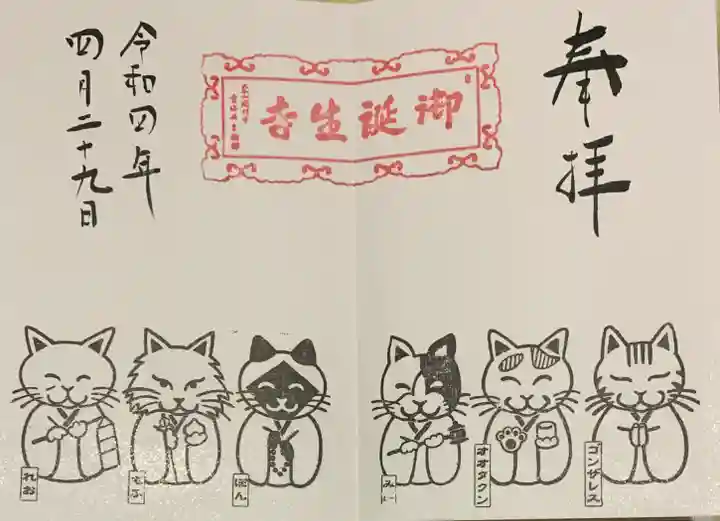 奉拝
御誕生寺
令和四年
四月二十九日
ゴンザレス
オオタクン
みい
ぽん
れお